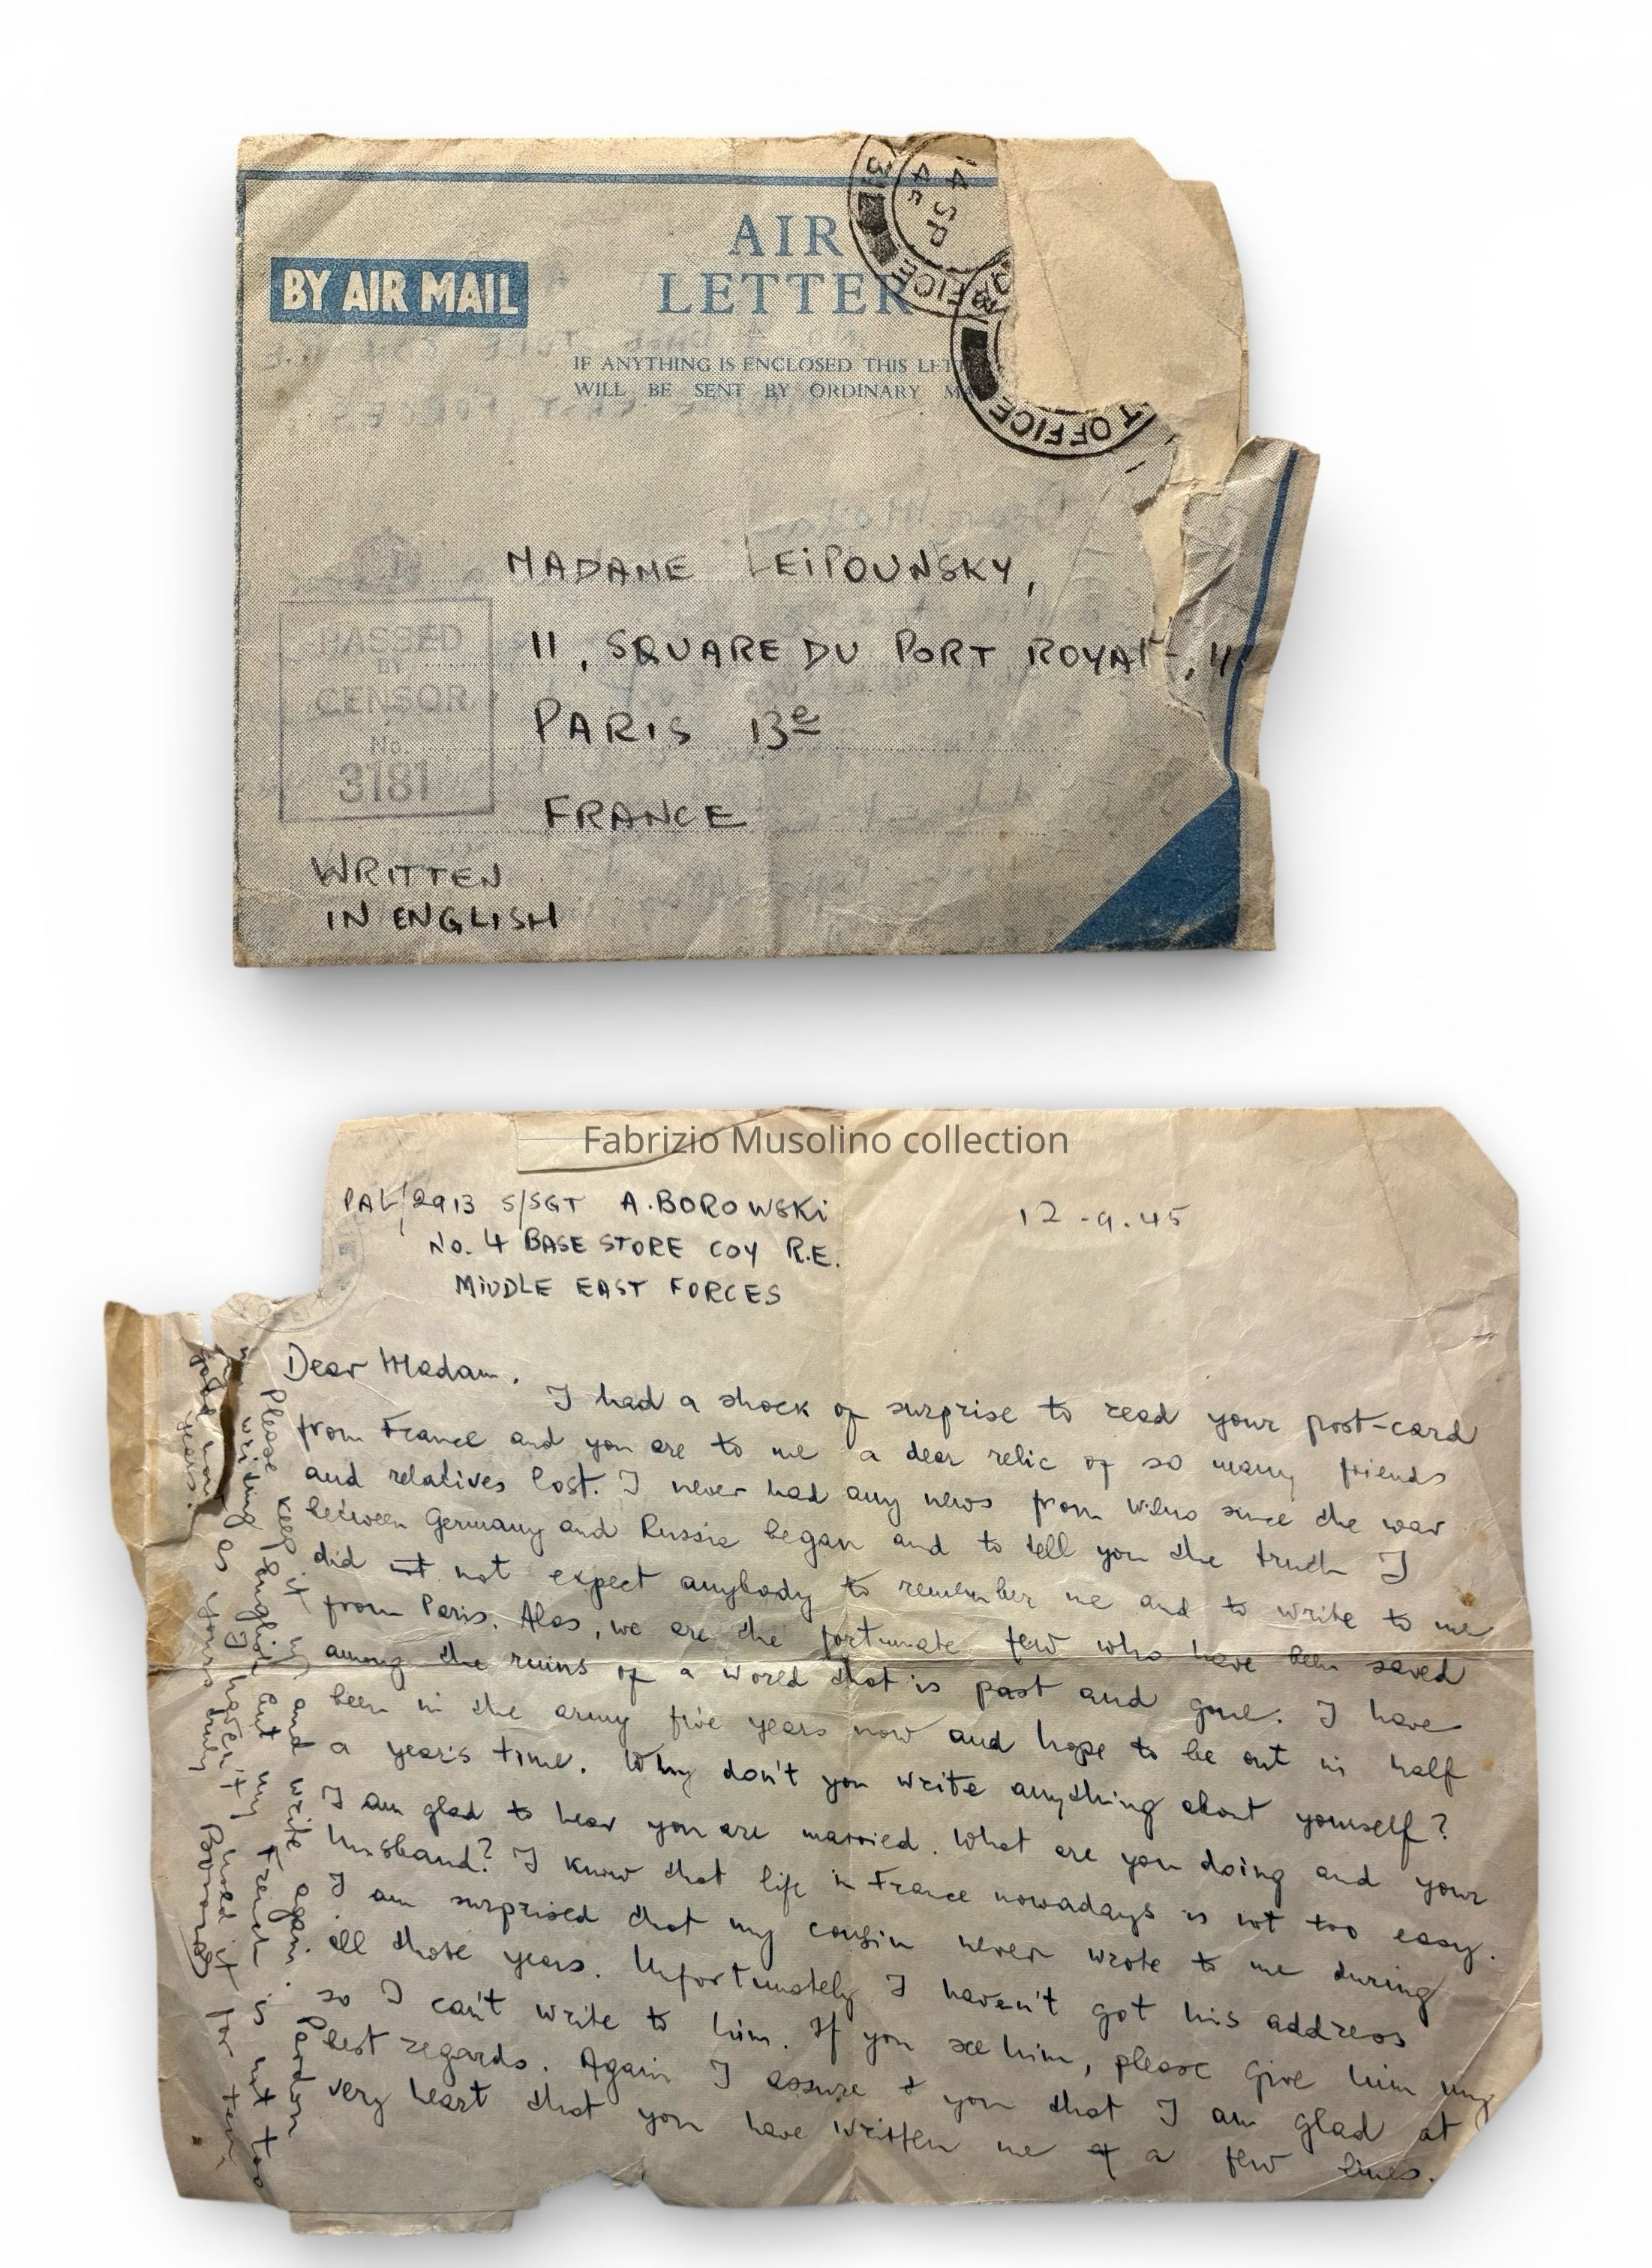 AIR
LETTER
BY AIR MAIL
IF ANYTHING IS ENCLOSED THIS LET
WILL BE SENT BY ORDINARY MA
4 SP
45
FICE
T OFFICE
MADAME LEIPOUNSKY,
11, SQUARE DU PORT ROYAL, 11
PARIS 13e
FRANCE
PASSED
BY
CENSOR
No.
3181
WRITTEN
IN ENGLISH
Fabrizio Musolino collection
PAL/2913 S/SGT A. BOROWSKI
No. 4 BASE STORE COY R.E.
MIDDLE EAST FORCES
12-9-45
Dear Madam,
I had a shock of surprise to read your post-card
from France and you are to me a dear relic of so many friends
and relatives lost. I never had any news from Wilno since the war
between Germany and Russia began and to tell you the truth I
did not expect anybody to remember me and to write to me
from Paris. Alas, we are the fortunate few who have been saved
among the ruins of a world that is past and gone. I have
been in the army five years now and hope to be out in half
a year's time. Why don't you write anything about yourself?
I am glad to hear you are married. What are you doing and your
husband? I know that life in France nowadays is not too easy.
I am surprised that my cousin never wrote to me during
all those years. Unfortunately I haven't got his address
so I can't write to him. If you see him, please give him my
best regards. Again I assure you that I am glad at
very heart that you have written me a few lines.
Please keep it up and write again. Pardon
writing English but my French is not too
good now as I haven't used it for ten
years.
Yours truly Borowski